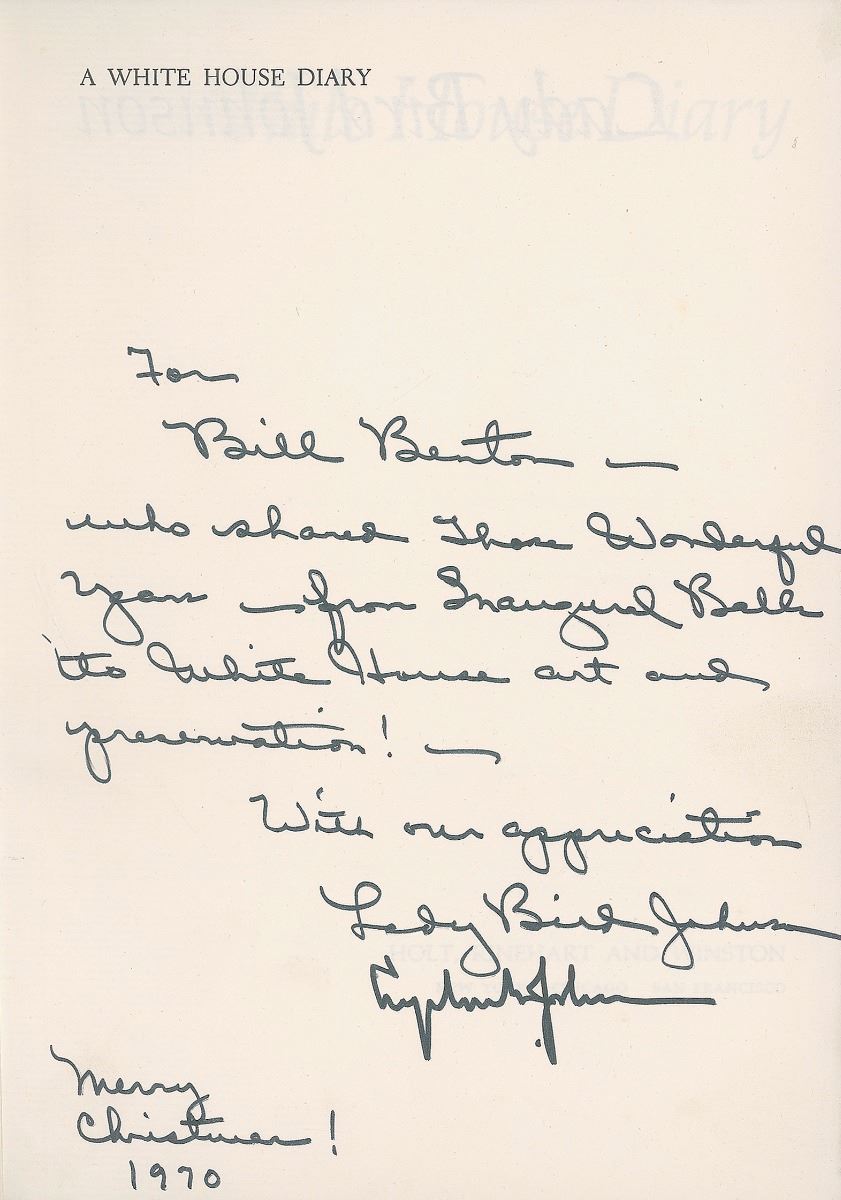 A WHITE HOUSE DIARY
For
Bill Benton —
who shared those Wonderful
years — from Inaugural Balls
to White House art and
preservation! —
With our appreciation
Lady Bird Johnson
Lyndon B. Johnson
Merry
Christmas!
1970
HOLT, RINEHART AND WINSTON
NEW YORK CHICAGO SAN FRANCISCO